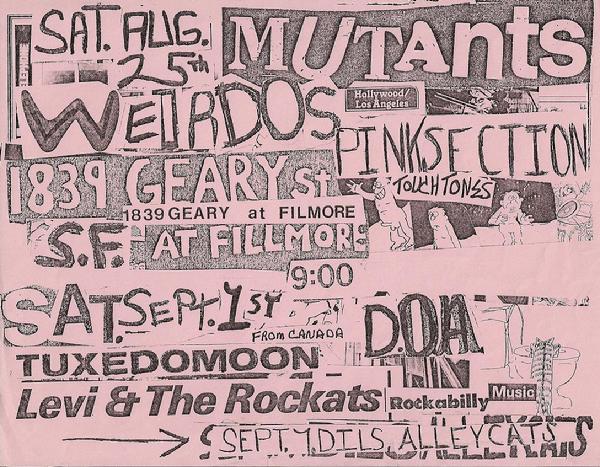 SAT. AUG. 25th
MUTAnts
WEIRDOS
Hollywood/
Los Angeles
PINKSECTION
TOUCHTONES
1839 GEARY St
1839 GEARY at FILMORE
S.F. AT FILLMORE
9:00
SAT. SEPT. 1ST
FROM CANADA
D.O.A.
TUXEDOMOON
Levi & The Rockats
Rockabilly Music
SEPT. 7 DILS, ALLEYCATS